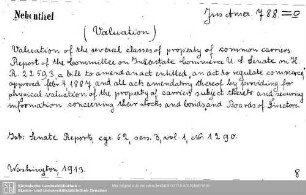 Jus Amer. 788 =0
Nebentitel
(Valuation)
Valuation of the several classes of property of common carriers
Report of the Committee on Interstate Commerce U. S. Senate on H.
R. 22593, a bill to amend an act entitled, an act to regulate commerce,
approved febr. 4 1887, and all acts amendatory thereof by providing
physical valuation of the property of carriers subject thereto and securing
information concerning their stocks and bonds and Boards of Directors.
Senate Report, cgr 62, sess. 3, vol. 1, nr. 1290.
Washington 1913.
8